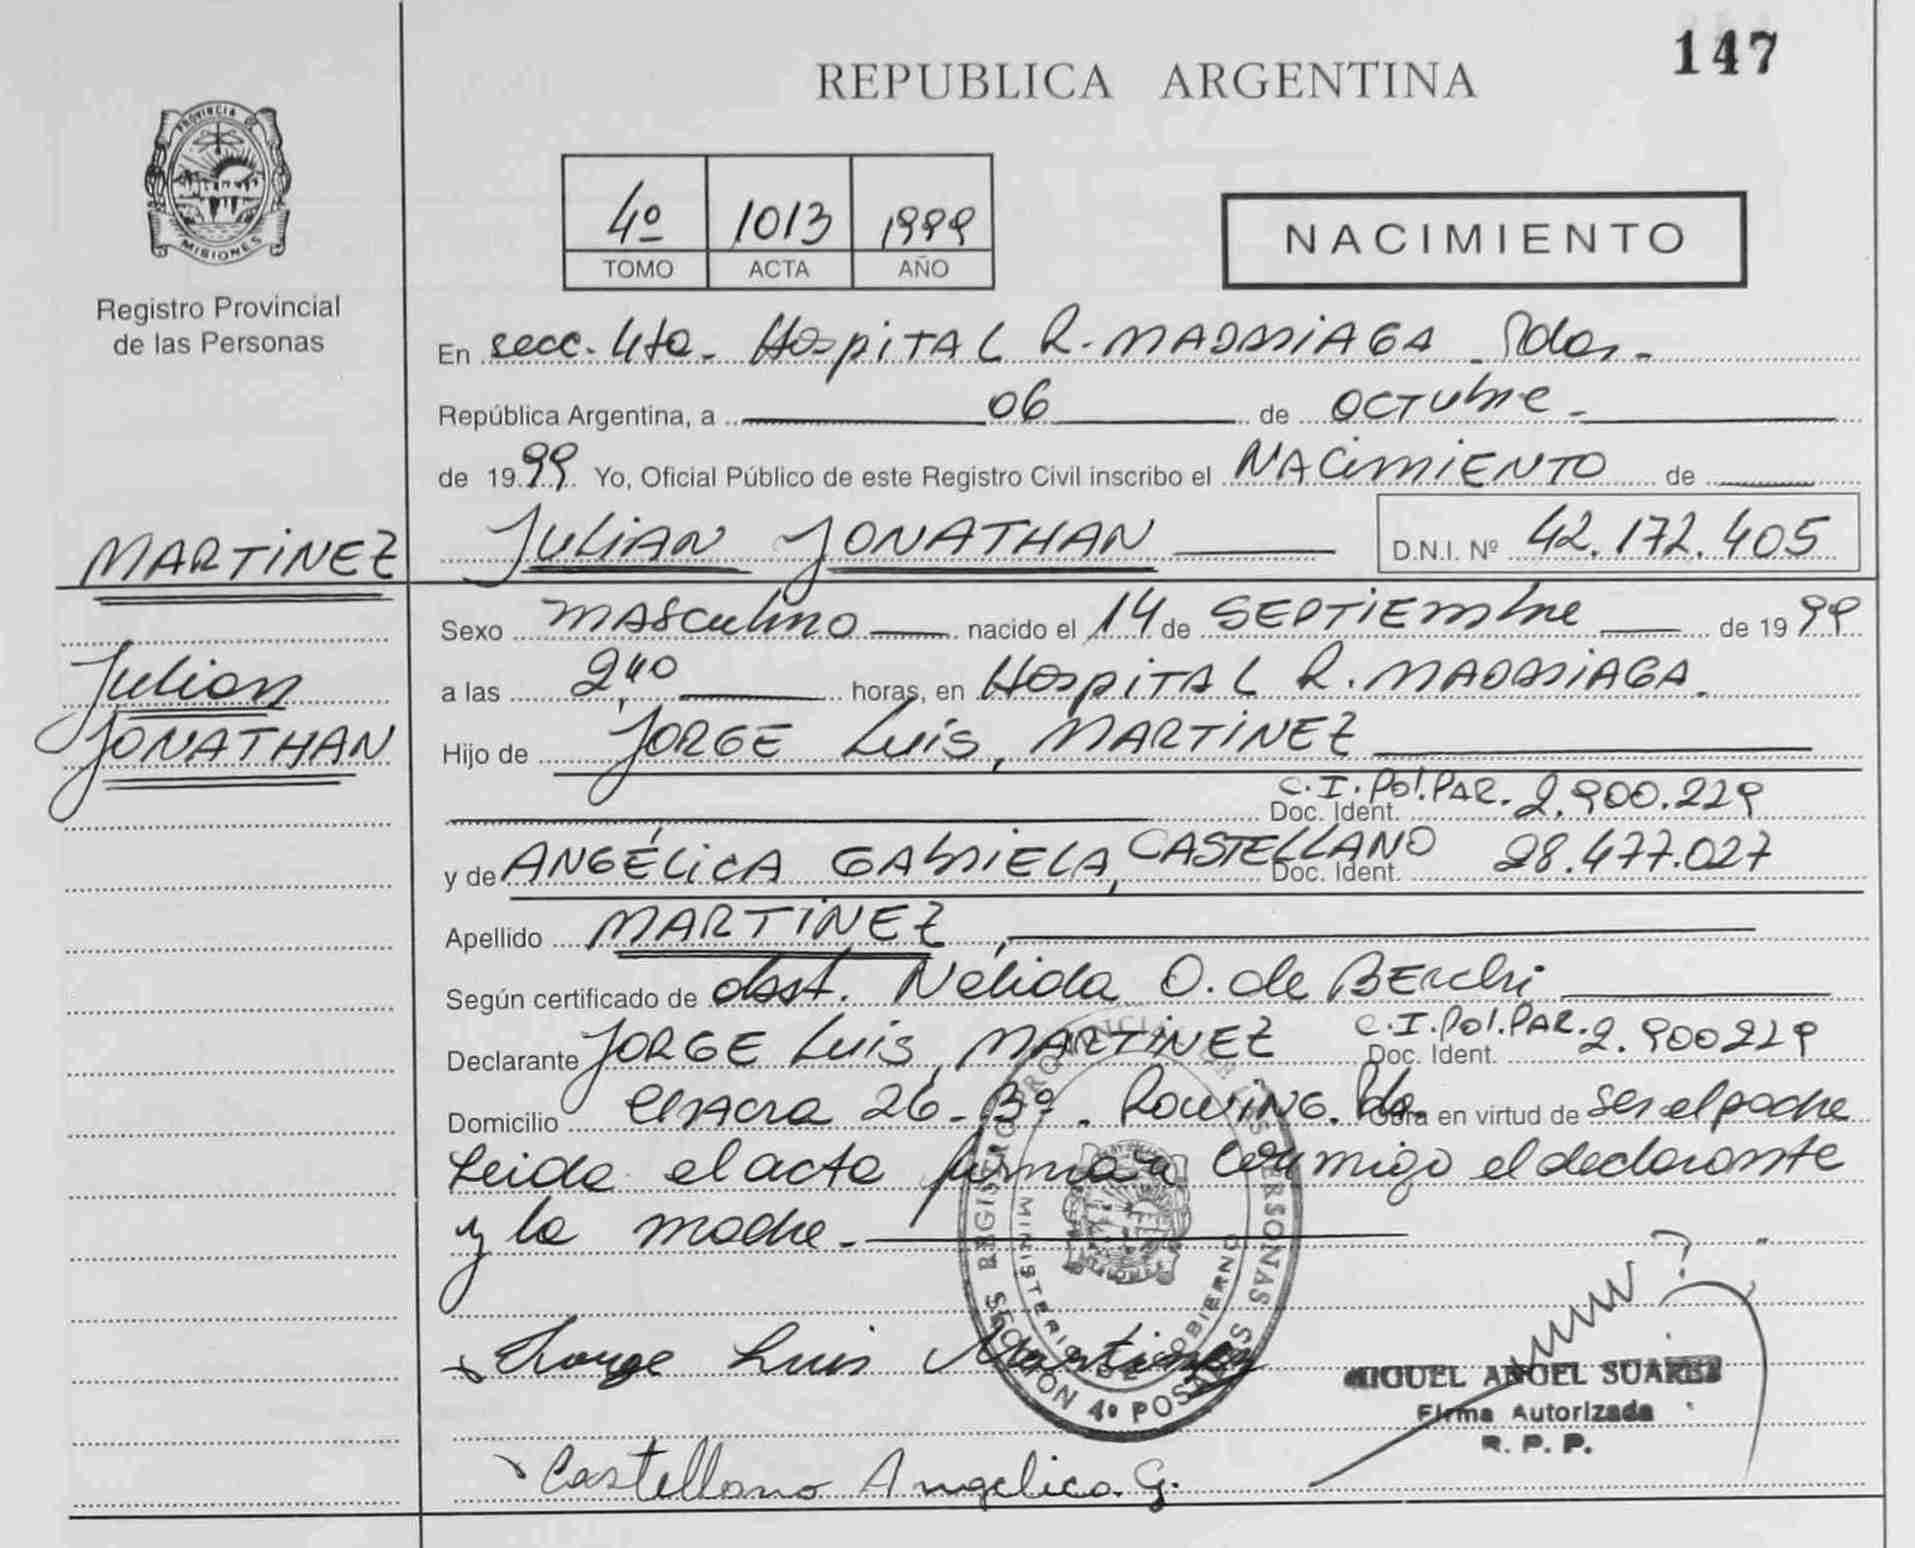 147
REPUBLICA ARGENTINA
PROVINCIA DE
MISIONES
Registro Provincial
de las Personas
4º 1013 1999
TOMO ACTA AÑO
NACIMIENTO
En secc. 4ta. Hospital R. MADARIAGA Pdas.
República Argentina, a 06 de octubre
de 1999 Yo, Oficial Público de este Registro Civil inscribo el NACIMIENTO de
JULIAN JONATHAN D.N.I. Nº 42.172.405
MARTINEZ
Julian
JONATHAN
Sexo masculino nacido el 14 de SEPTIEMbre de 1999
a las horas, en Hospital R. MADARIAGA.
Hijo de JORGE Luis, MARTINEZ
C.I. Pol. PAR. 2.900.229
Doc. Ident.
y de ANGÉLICA GABRIELA, CASTELLANO Doc. Ident. 28.477.027
Apellido MARTINEZ,
Según certificado de obst. Nélida O. de
Declarante JORGE Luis, MARTINEZ C.I. Pol. PAR. Doc. Ident. 2.900229
Domicilio Chacra 26 - Bº. Rowing. Pdas. Obra en virtud de ser el padre
Leida el acta firman conmigo el declarante
y la madre.
REGISTRO PROVINCIAL DE LAS PERSONAS
MINISTERIO DE GOBIERNO
SECCIÓN 4º POSADAS
Jorge Luis Martinez
MIGUEL ANGEL SUAREZ
Firma Autorizada
R. P. P.
Castellano Angelica. G.